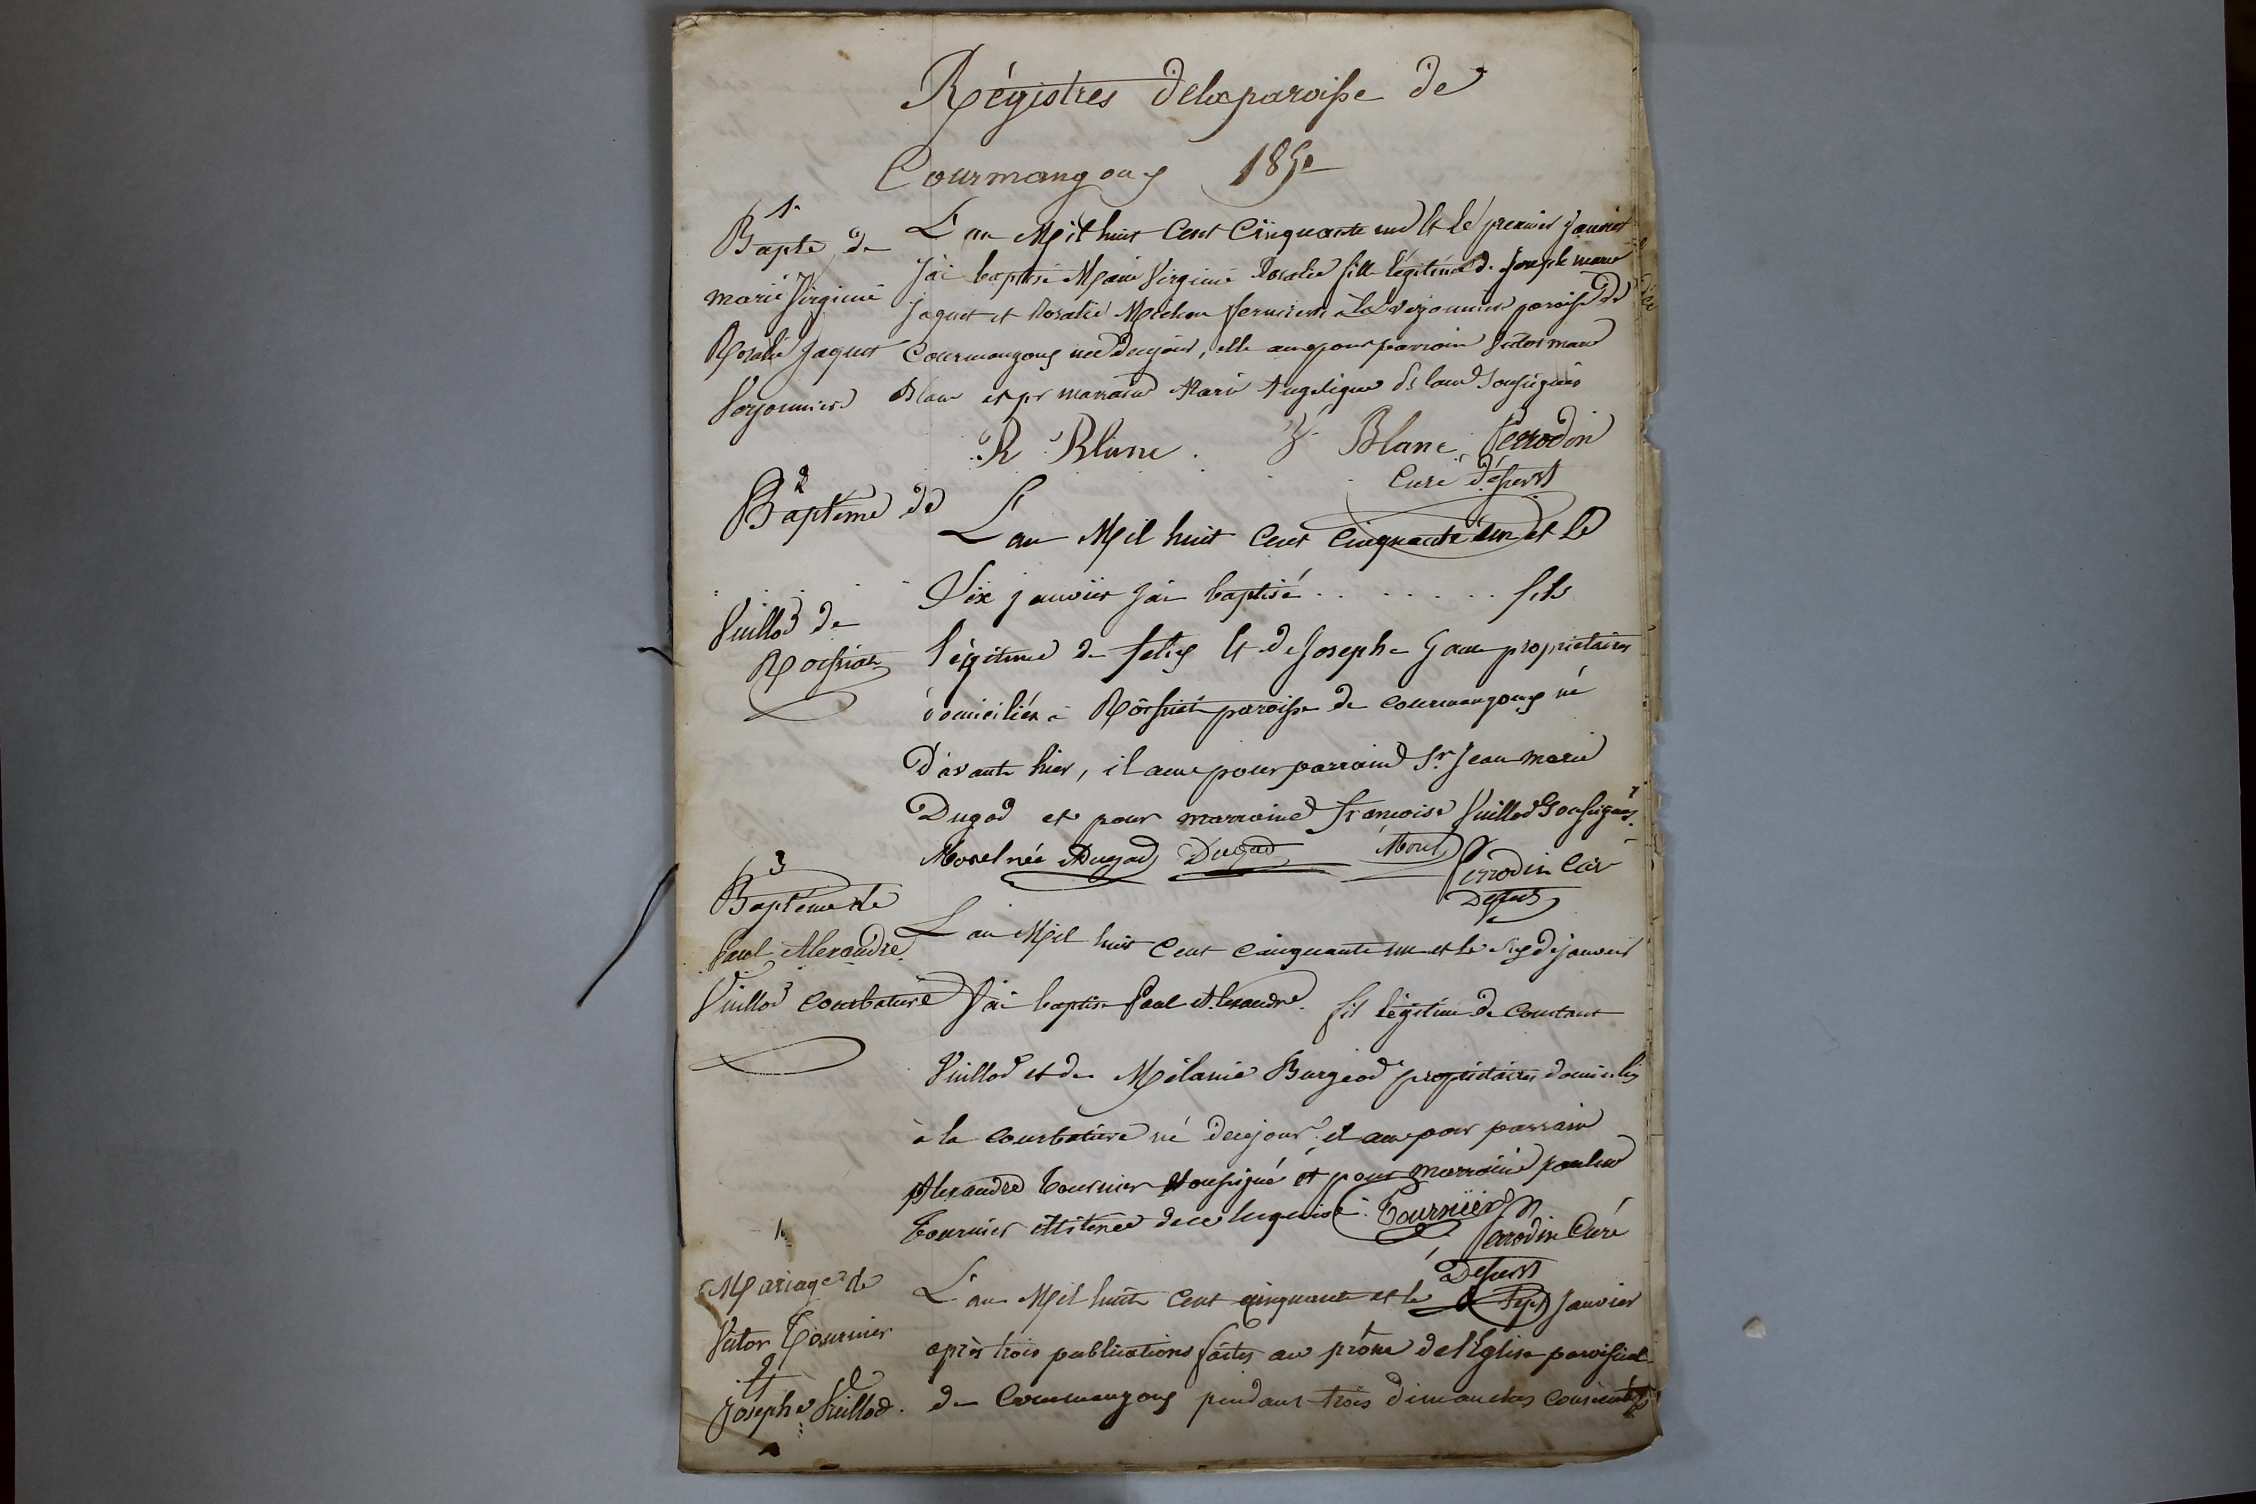 Régistres dela paroisse de
Courmangoux 185
1.
Bapte de
marie Virginie
Rosalie Jaquet
Voyonnière
L'an Mil huit Cent Cinquante un Et le premier janvier
j'ai baptisé Marie Virginie Rosalie fille légitime de Joseph marie
Jaquet et Rosalie Michon fermiers à la paroisse de
Courmangoux née de cejour, elle aeue pour parrain Victor marie
Blanc et pr marraine Marie Angelique Blanc Soussignés
R Blanc. V Blanc Perrodin
Curé Desservt
2
Baptême de
Vuillod de
Roissiat
L'an Mil huit Cent Cinquante un et le
Six janvier j'ai baptisé . . . . . . . fils
légitime de felix Et de Josephe Gaue propriétaires
domiciliés à Roissiat paroisse de Courmangoux né
d'avant hier, il aeue pour parrain Sr. Jean marie
Dugad et pour marraine françoise Vuillod Soussignés.
Morel née Dugad Dugad Morel Perrodin Curé
Desservt
3
Baptême de
Paul Alexandre
Vuillod Courbature
L'an Mil huit Cent Cinquante un et le six de janvier
J'ai baptisé Paul Alexandre fils légitime de Constant
Vuillod et de Mélanie Burgeod propriétaires domiciliés
à la Courbature né de cejour il aeue pour parrain
Alexandre Tournier Soussigné et pour marraine
Tournier de ce Tournier Perrodin Curé
Desservt
1.
Mariage de
Victor Tournier
Et
Josephe Vuillod.
L'an Mil huit Cent cinquante et le Sept Janvier
après trois publications faites au prône de l'Eglise paroissiale
de Courmangoux pendant trois dimanches